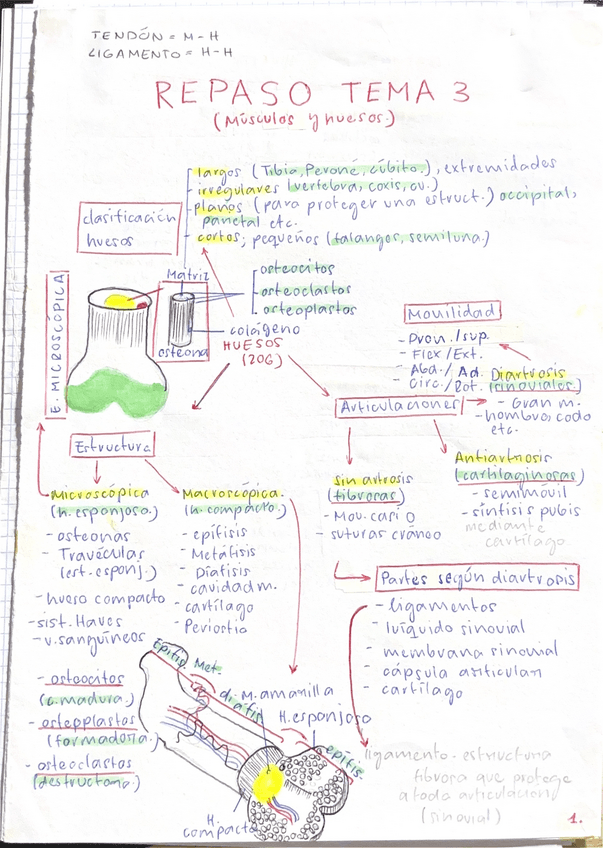 TENDÓN = M - H
LIGAMENTO = H - H
REPASO TEMA 3
(Músculos y huesos.)
clasificación
huesos
largos (Tibia, Peroné, cúbito.), extremidades
irregulares (vertebra, coxis, cu.)
planos (para proteger una estruct.) occipital,
parietal etc.
cortos; pequeños (falanges, semiluna.)
E. MICROSCÓPICA
Matriz
osteona
osteocitos
osteoclastos
osteoplastos
colágeno
HUESOS
(206)
Movilidad
- Pron./sup.
- Flex/Ext.
- Abd./Ad.
- Circ./Rot.
Diartrosis
(sinoviales.)
- Gran m.
- hombro, codo
etc.
Articulaciones
Estructura
Microscópica
(h. esponjoso.)
- osteonas
- Travéculas
(est. esponj.)
- hueso compacto
- sist. Haves
- v. sanguíneos
- osteocitos
(c. madura.)
- osteoplastos
(formadora.)
- osteoclastos
(destructora.)
Macroscópica.
(h. compacto.)
- epífisis
- Metáfisis
- Diáfisis
- cavidad m.
- cartílago
- Periostio
Sinartrosis
(fibrosas)
- Mov. casi 0
- suturas cráneo
Antiartrosis
(cartilaginosas)
- semimóvil
- sínfisis pubis
mediante
cartílago
Partes según diartrosis
- ligamentos
- luíquido sinovial
- membrana sinovial
- cápsula articular
- cartílago
ligamento - estructura
fibrosa que protege
a toda articulación
(sinovial)
Epífis.
Met.
diáfis
M. amarilla
H. esponjoso
epífis.
H.
compacto
1.